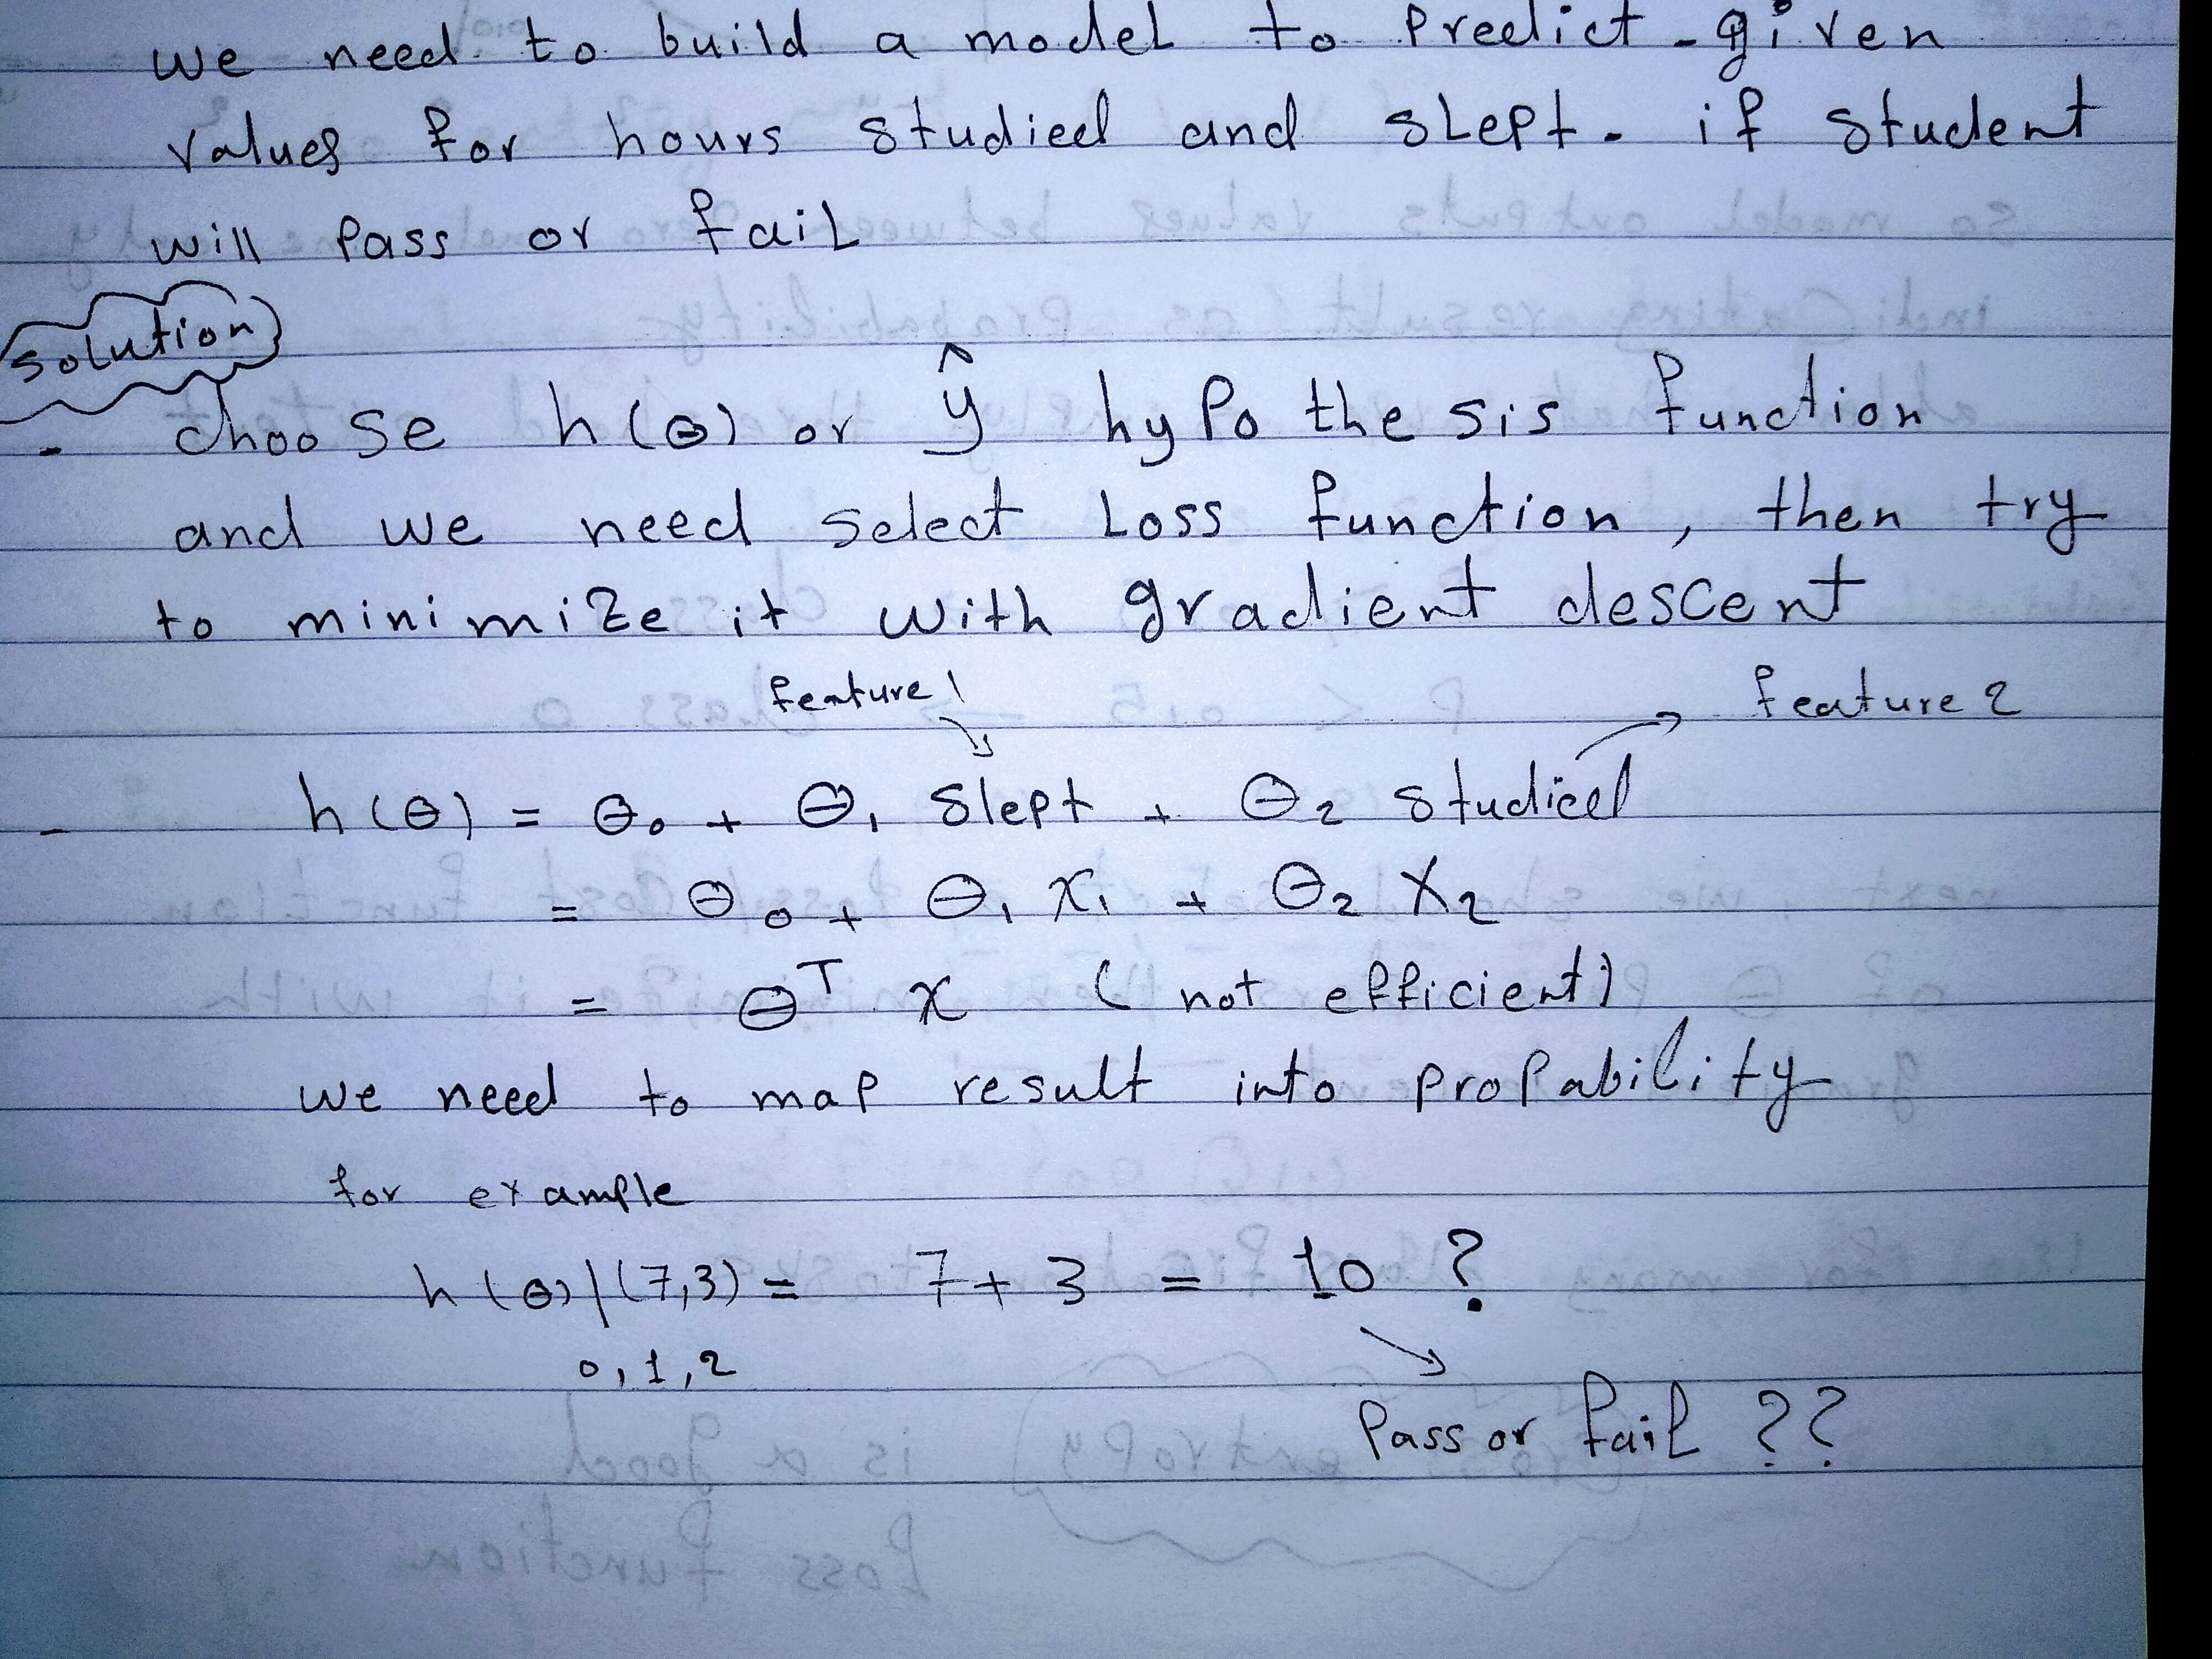 we need to build a model to predict - given
values for hours studied and slept - if student
will pass or fail
solution
- choose h(θ) or ŷ hypothesis function
and we need select Loss function, then try
to minimize it with gradient descent
feature 1 feature 2
- h(θ) = θ₀ + θ₁ slept + θ₂ studied
= θ₀ + θ₁ x₁ + θ₂ x₂
= θᵀ x (not efficient)
we need to map result into propability
for example
h(θ)|(7,3) = 7 + 3 = 10 ?
0,1,2
Pass or fail ??